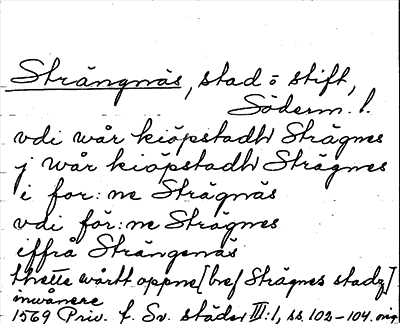 Strängnäs, stad o stift,
Söderm. l.
vdi wår kiöpstadh Strägnes
j wår kiöpstadh Strägnes
i for:ne Strägnäs
vdi för:ne Strägnes
iffrå Strängenäs
thette wårtt oppne [bref Strägnes stadz]
inwånere
1569 Priv. f. Sv. städer III:1, ss. 102-104. orig